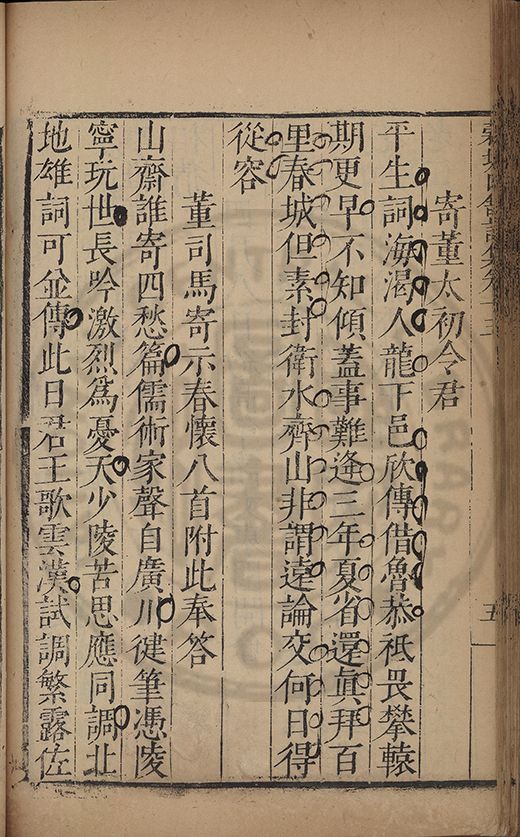 寄董太初令君
平生詞海渴人龍下邑欣傳借魯恭祗畏攀轅
期更早不知傾蓋事難逢三年夏省還眞拜百
里春城但素封衛水齊山非謂遠論交何日得
從容
董司馬寄示春懷八首附此奉答
山齋誰寄四愁篇儒術家聲自廣川健筆憑陵
寧玩世長吟激烈爲憂天少陵苦思應同調北
地雄詞可並傳此日君王歌雲漢試調繁露佐
五